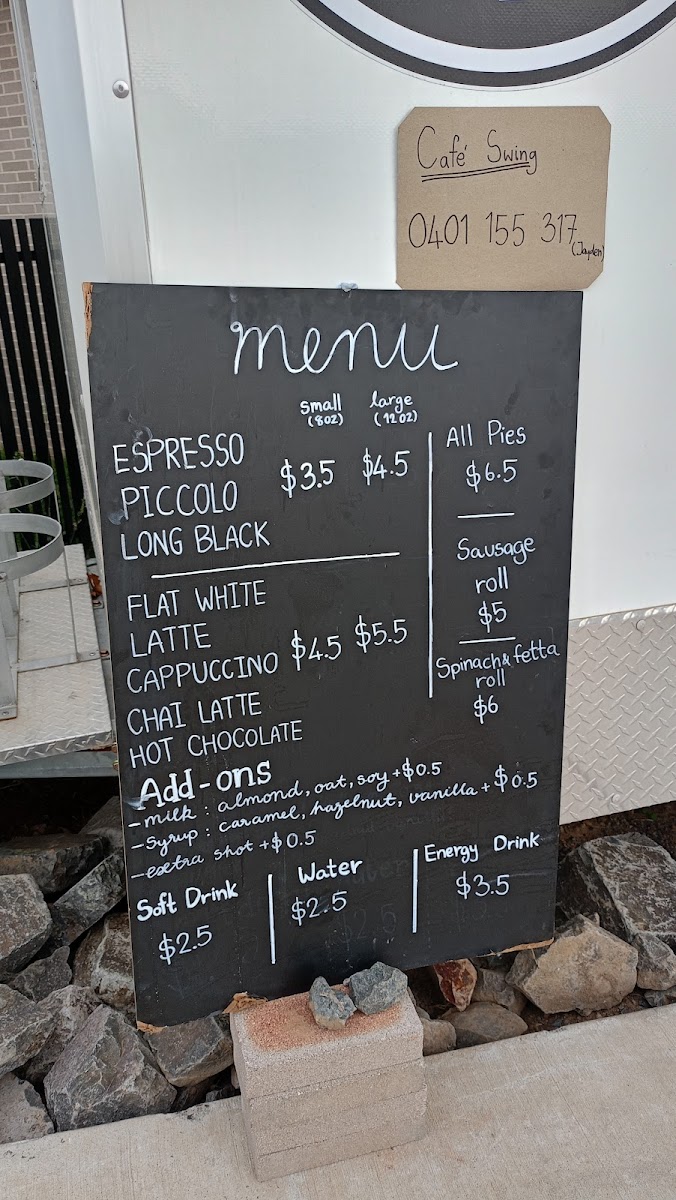 Café Swing
0401 155 317
(Jayden)
menu
small large
(8oz) (12oz)
ESPRESSO
PICCOLO
LONG BLACK
$3.5 $4.5
FLAT WHITE
LATTE
CAPPUCCINO
CHAI LATTE
HOT CHOCOLATE
$4.5 $5.5
All Pies
$6.5
Sausage
roll
$5
Spinach & fetta
roll
$6
Add-ons
- milk : almond, oat, soy +$0.5
- syrup : caramel, hazelnut, vanilla + $0.5
- extra shot +$0.5
Soft Drink
$2.5
Water
$2.5
Energy Drink
$3.5